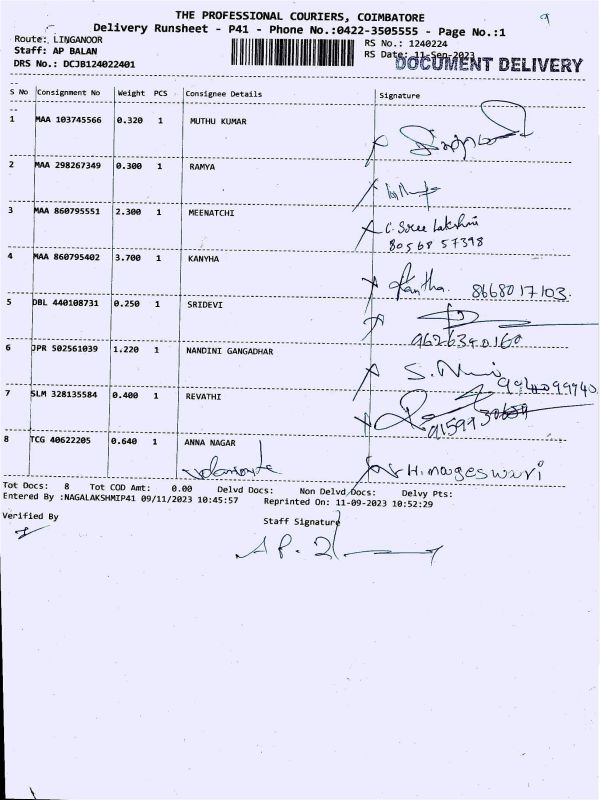 THE PROFESSIONAL COURIERS, COIMBATORE
9
Delivery Runsheet - P41 - Phone No.:0422-3505555 - Page No.:1
Route: LINGANOOR
RS No.: 1240224
Staff: AP BALAN
RS Date: 11-Sep-2023
DOCUMENT DELIVERY
DRS No.: DCJB124022401
S No Consignment No Weight PCS Consignee Details Signature
1 MAA 103745566 0.320 1 MUTHU KUMAR
2 MAA 298267349 0.300 1 RAMYA
3 MAA 860795551 2.300 1 MEENATCHI C. Sree Lakshmi
80568 57398
4 MAA 860795402 3.700 1 KANYHA Kantha. 8668017103.
5 DBL 440108731 0.250 1 SRIDEVI
9626340160
6 JPR 502561039 1.220 1 NANDINI GANGADHAR
7 SLM 328135584 0.400 1 REVATHI
8 TCG 40622205 0.640 1 ANNA NAGAR H. mageswari
Tot Docs: 8 Tot COD Amt: 0.00 Delvd Docs: Non Delvd Docs: Delvy Pts:
Entered By :NAGALAKSHMIP41 09/11/2023 10:45:57 Reprinted On: 11-09-2023 10:52:29
Verified By
Staff Signature